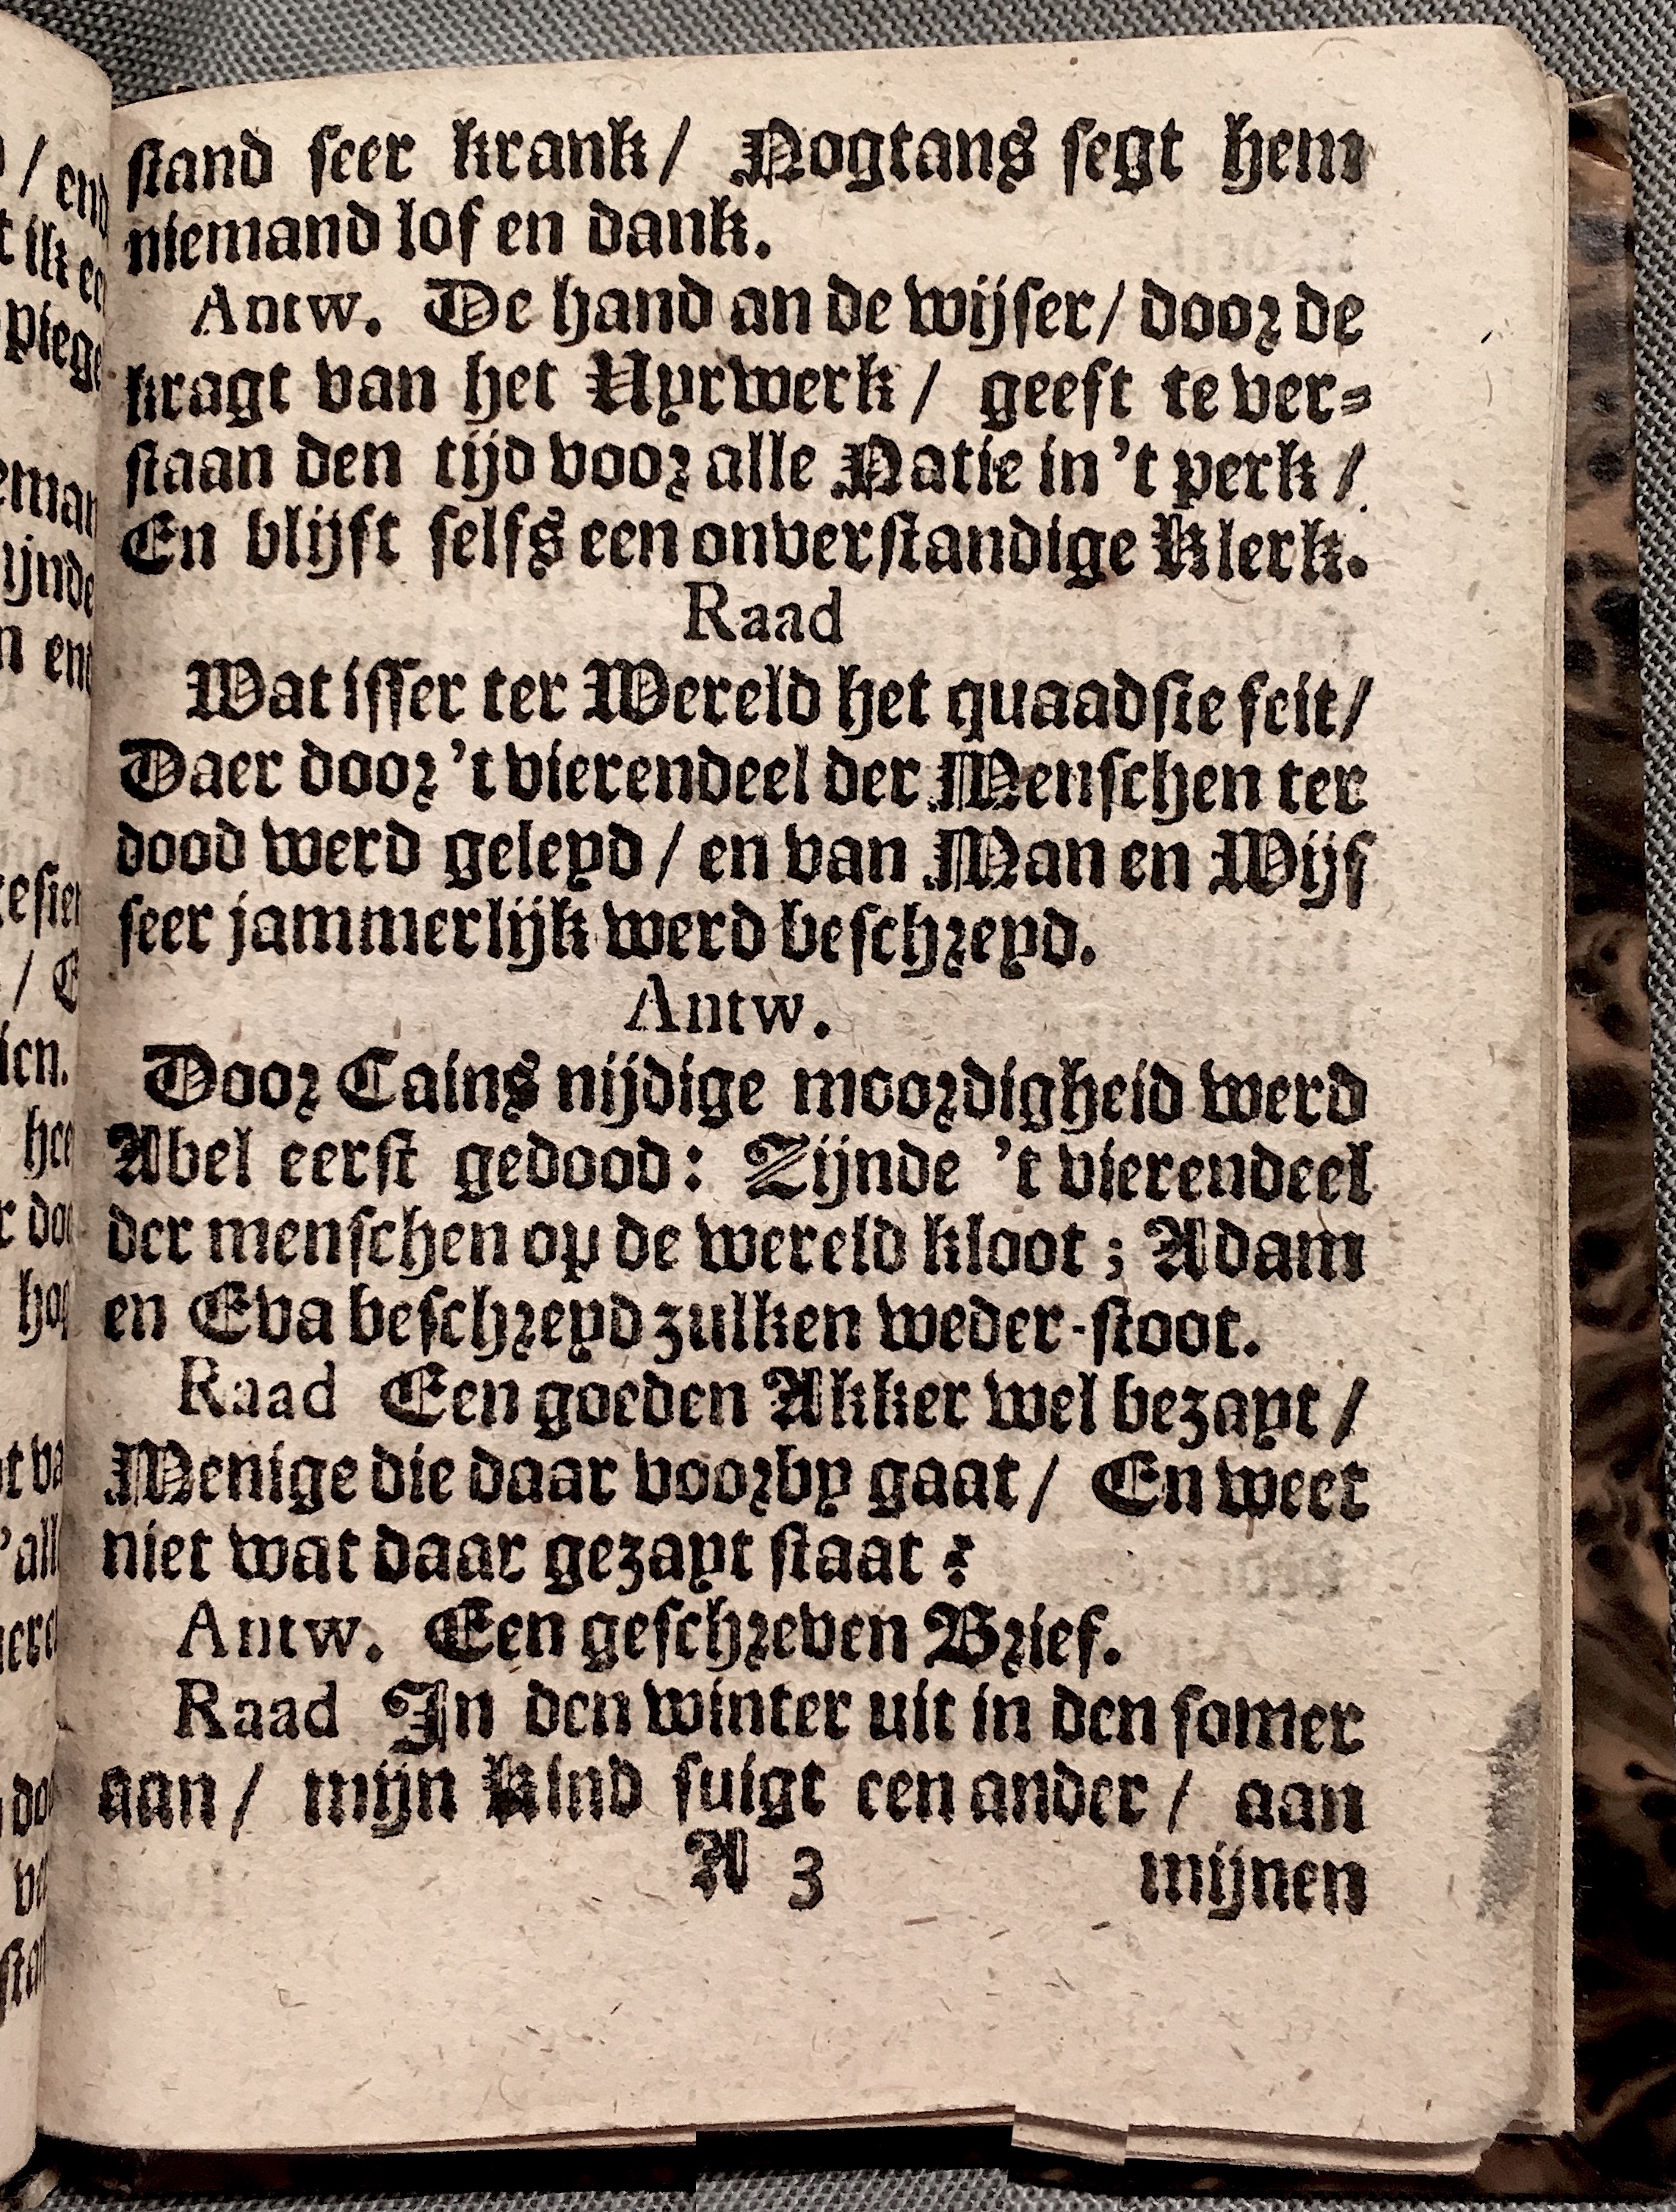 stand seer krank / Nogtans segt hem
niemand lof en dank.
Antw. De hand an de wijser / door de
kragt van het Uyrwerk / geeft te ver-
staan den tijd voor alle Natie in 't perk /
En blijft selfs een onverstandige Klerk.
Raad
Wat isser ter Wereld het quaadste feit /
Daer door 't vierendeel der Menschen ter
dood werd geleyd / en van Man en Wijf
seer jammerlijk werd beschreyd.
Antw.
Door Cains nijdige moordigheid werd
Abel eerst gedood: Zijnde 't vierendeel
der menschen op de wereld kloot ; Adam
en Eva beschreyd zulken weder-stoot.
Raad Een goeden Akker wel bezayt /
Menige die daar voorby gaat / En weet
niet wat daar gezayt staat ?
Antw. Een geschreven Brief.
Raad In den winter uit in den somer
aan / mijn Kind suigt een ander / aan
A 3 mijnen